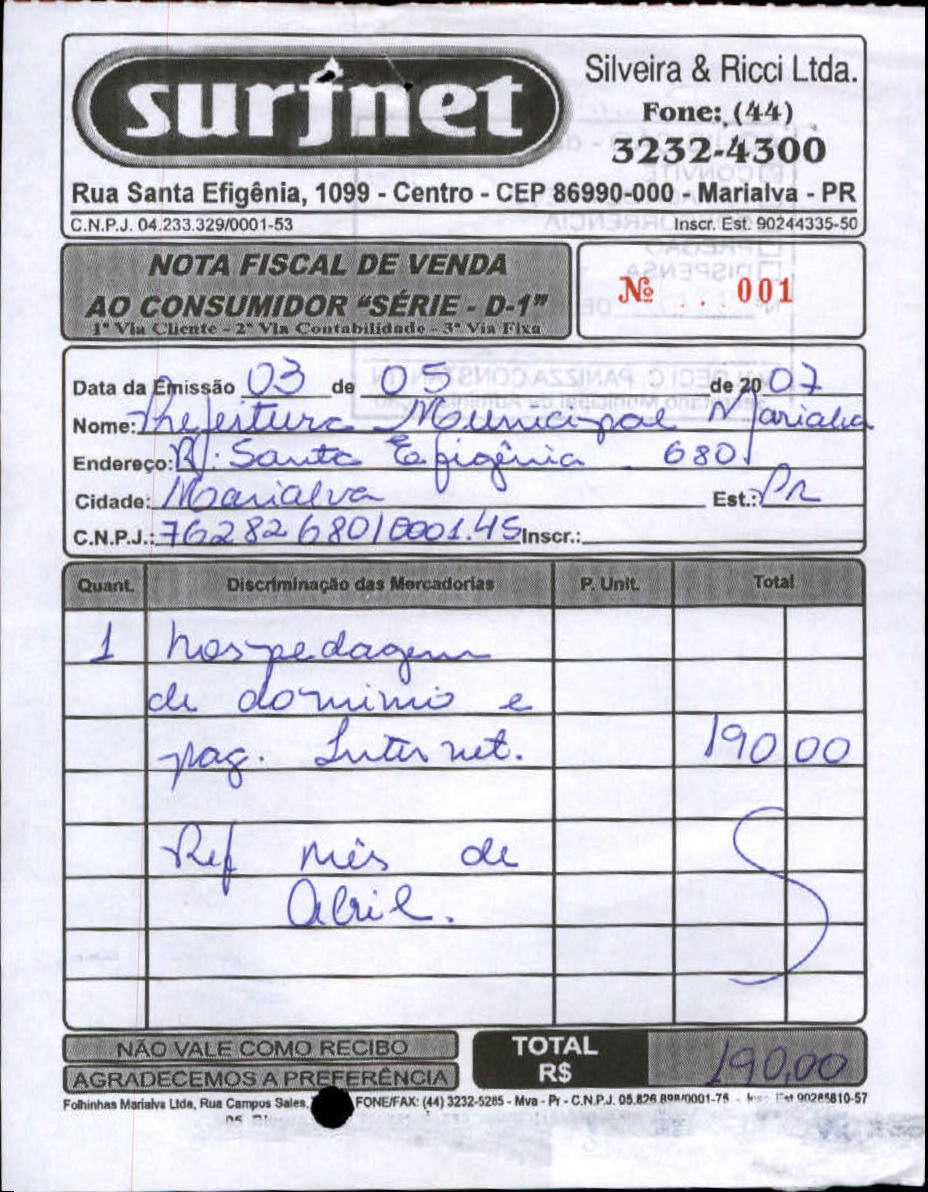 surfnet
Silveira & Ricci Ltda.
Fone: (44)
3232-4300
Rua Santa Efigênia, 1099 - Centro - CEP 86990-000 - Marialva - PR
C.N.P.J. 04.233.329/0001-53 Inscr. Est. 90244335-50
NOTA FISCAL DE VENDA
AO CONSUMIDOR "SÉRIE - D-1"
1ª Via Cliente - 2ª Via Contabilidade - 3ª Via Fixa
Nº . . 001
Data da Emissão 03 de 05 de 2007
Nome: Prefeitura Municipal Marialva
Endereço: R: Santa Efigênia 680
Cidade: Marialva Est.: PR
C.N.P.J.: 76282680/0001.45 Inscr.:
Quant. Discriminação das Mercadorias P. Unit. Total
1 hospedagem
de dominio e
pag. Internet. 190 00
Ref mês de
Abril.
NÃO VALE COMO RECIBO
AGRADECEMOS A PREFERÊNCIA
TOTAL
R$ 190,00
Folhinhas Marialva Ltda, Rua Campos Sales, FONE/FAX: (44) 3232-5265 - Mva - Pr - C.N.P.J. 05.826.898/0001-76 - Insc. Est 90285810-57